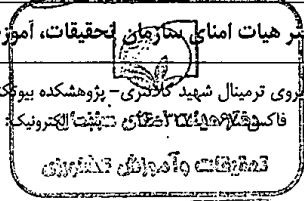 تر هیات امنای سازمان تحقیقات، آموز
روی ترمینال شهید کلانتری- پژوهشکده بیوتک
فاکس الکترونیک:
تحقیقات و آموزش کشاورزی